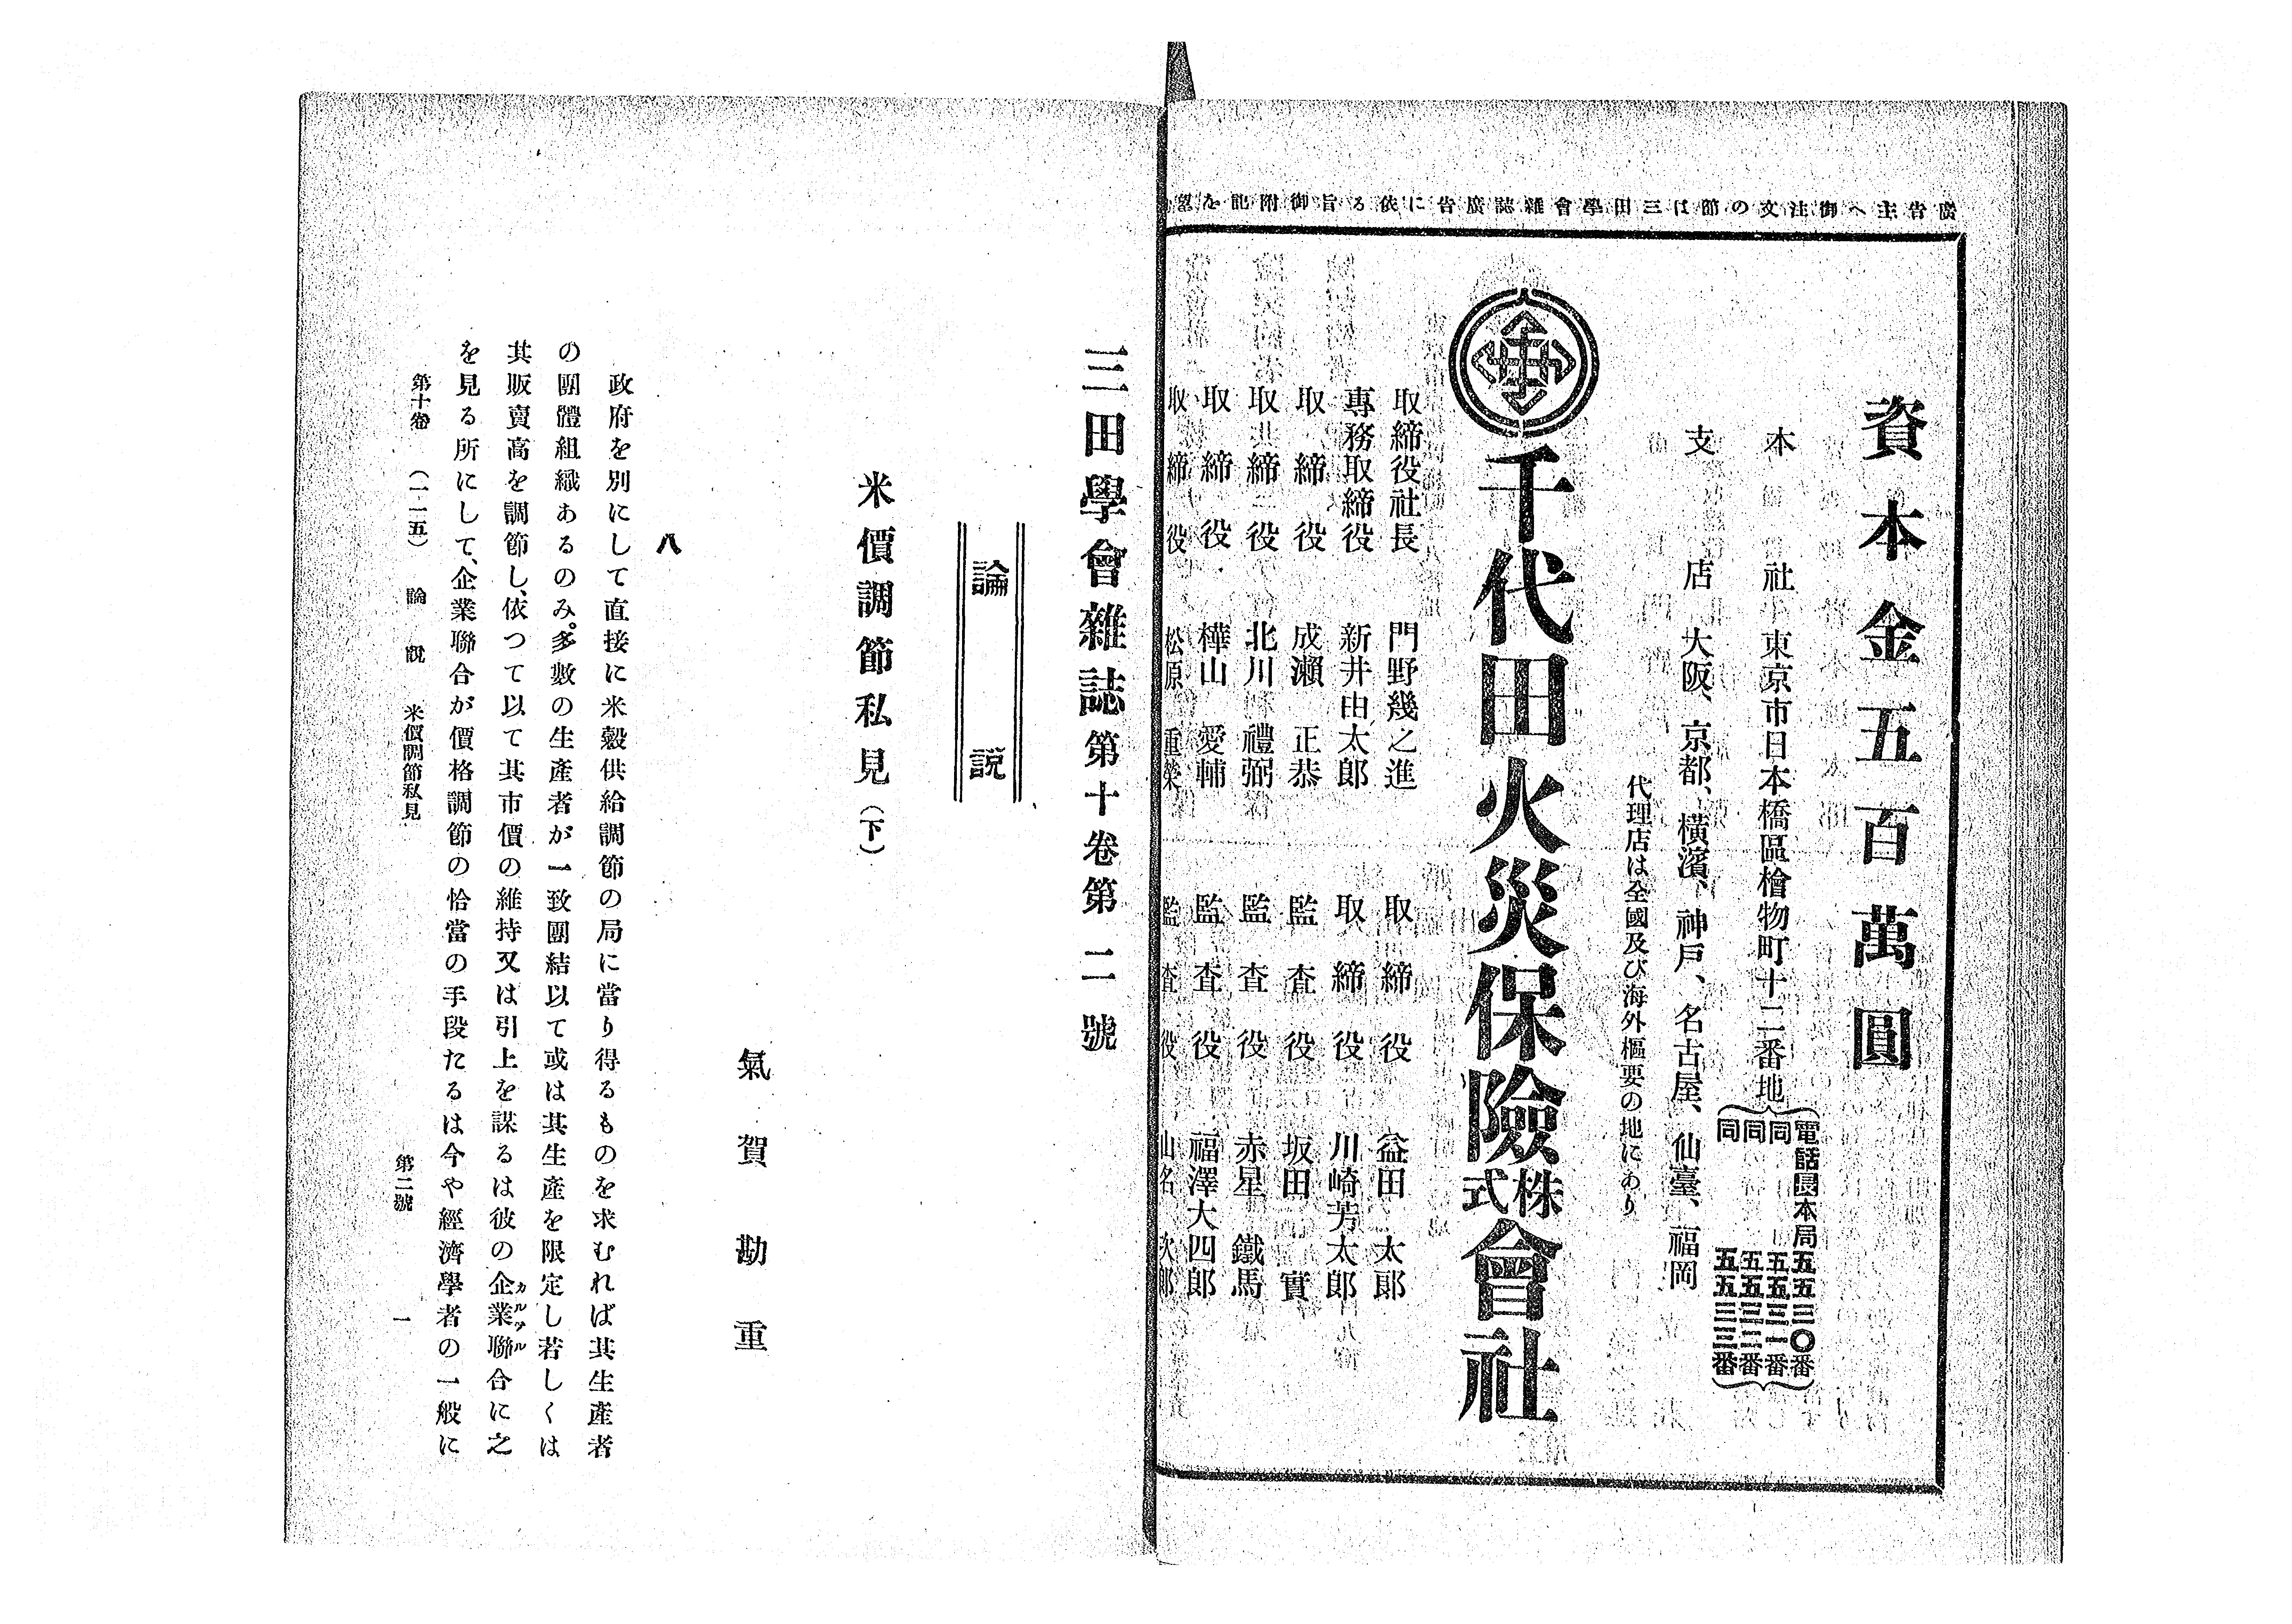 廣告主へ御注文の節は三田學會雜誌廣告に依る旨御附記を望
資本金五百萬圓
本社 東京市日本橋區檜物町十二番地
電話長本局五五三〇番
同五五三一番
同五五三二番
同五五三三番
支店 大阪、京都、横濱、神戸、名古屋、仙臺、福岡
代理店は全國及び海外樞要の地にあり
千代田火災保險株式會社
取締役社長 門野幾之進
專務取締役 新井由太郎
取締役 成瀨正恭
取締役 北川禮弼
取締役 樺山愛輔
取締役 松原重榮
取締役 益田太郎
取締役 川崎芳太郎
監査役 坂田實
監査役 赤星鐵馬
監査役 福澤大四郎
監査役 山名次郎
三田學會雜誌第十卷第二號
論說
米價調節私見(下)
氣賀勘重
八
政府を別にして直接に米穀供給調節の局に當り得るものを求むれば其生產者
の團體組織あるのみ。多數の生產者が一致團結以て或は其生產を限定し若しくは
其販賣高を調節し、依つて以て其市價の維持又は引上を謀るは彼の企業聯合に之
カルテル
を見る所にして、企業聯合が價格調節の恰當の手段たるは今や經濟學者の一般に
第十卷 (一一五) 論說 米價調節私見 第二號 一